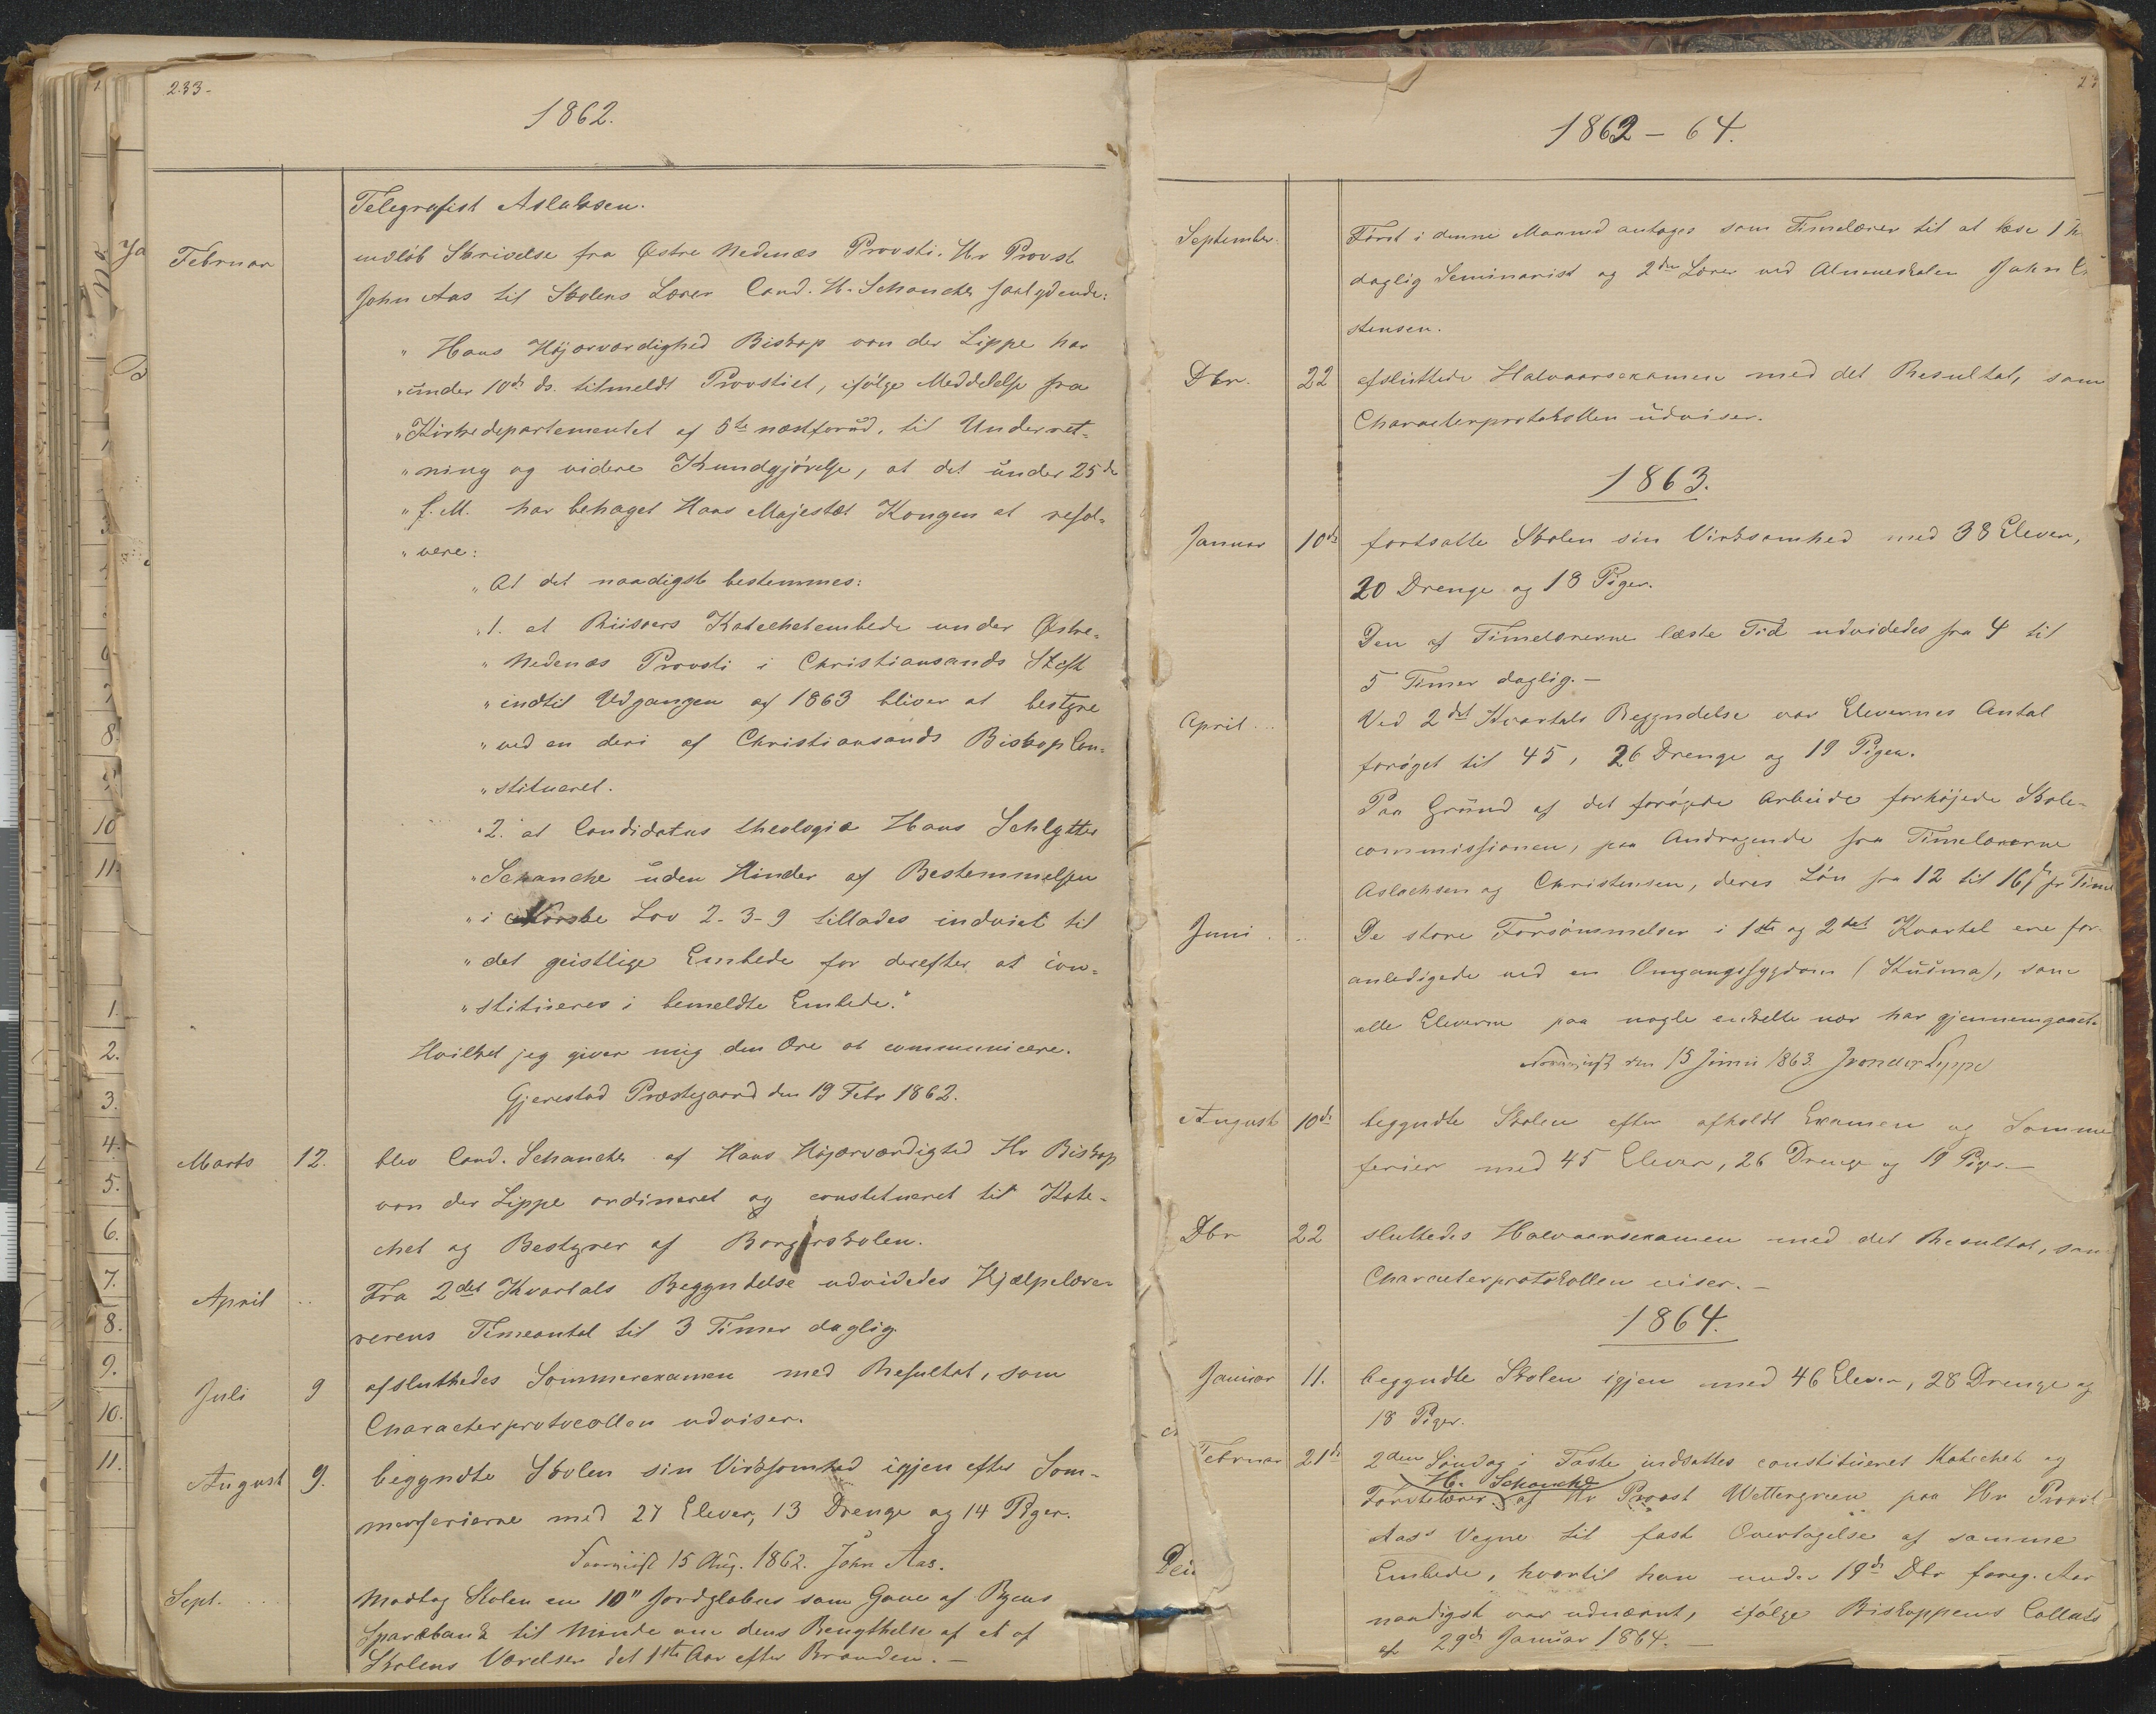 233.
1862.
Telegrafist Aslaksen.
Februar indløb Skrivelse fra Østre Nedenæs Provsti. Hr Provst
John Aas til Skolens Lærer Cand. H. Schanche saalydende:
„ Hans Højærværdighed Biskop von der Lippe har
„ under 10de ds. tilmeldt Provstiet, ifølge Meddelelse fra
„ Kirkedepartementet af 5te næstforud, til Underret-
„ ning og videre Kundgjørelse, at det under 25de
„ f. M. har behaget Hans Majestæt Kongen at resol-
„ vere:
„ At det naadigst bestemmes:
„ 1. at Riisøers Katechetembede under Østre-
„ Nedenæs Provsti i Christiansands Stift
„ indtil Udgangen af 1863 bliver at bestyre
„ ved en deri af Christiansands Biskop Con-
„ stitueret.
„ 2. at Candidatus theologiæ Hans Schlytter
„ Schanche uden Hinder af Bestemmelsen
„ i Norske Lov 2-3-9 tillades indviet til
„ det geistlige Embede for derefter at con-
„ stitueres i bemeldte Embede."
Hvilket jeg giver mig den Ære at communicere.
Gjerestad Præstegaard den 19 Febr 1862.
Marts 12. blev Cand. Schanche af Hans Højærværdighed Hr Biskop
von der Lippe ordineret og constitueret til Kate-
chet og Bestyrer af Borgerskolen.
April .. Fra 2det Kvartals Begyndelse udvidedes Hjælpelære-
rerens Timeantal til 3 Timer daglig.
Juli 9 afsluttedes Sommerexamen med Resultat, som
Characterprotocollen udviser.
August 9. begyndte Skolen sin Virksomhed igjen efter Som-
merferierne med 27 Elever, 13 Drenge og 14 Piger.
15 Aug. 1862. John Aas.
Sept. ... Modtog Skolen en 10" Jordglobus som Gave af Byens
Sparebank til Minde om dens Benyttelse af et af
Skolens Værelser det 1ste Aar efter Branden. —
1862 - 64.
September. Først i denne Maaned antoges som Timelærer til at læse 1
daglig Seminarist og 2den Lærer ved Almueskolen John
stensen.
Dbr. 22 afsluttede Halvaarsexamen med det Resultat, som
Characterprotokollen udviser.
1863.
Januar 10de fortsatte Skolen sin Virksomhed med 38 Elever,
20 Drenge og 18 Piger.
Den af Timelærerne læste Tid udvidedes fra 4 til
5 Timer daglig. —
April ... Ved 2det Kvartals Begyndelse var Elevernes Antal
forøget til 45, 26 Drenge og 19 Piger.
Paa Grund af det forøgede Arbeide forhøjede Skole-
commissionen, paa Andragende fra Timelærerne
Aslachsen og Christensen, deres Løn fra 12 til 16 pr Time
Juni . .. De store Forsømmelser i 1ste og 2det Kvartal ere for-
anledigede ved en Omgangssygdom (Kusma), som
alle Eleverne paa nogle enkelte nær har gjennemgaaet.
den 15 Juni 1863. J von der Lippe
August 10de begyndte Skolen efter afholdt Examen og Somme
ferier med 45 Elever, 26 Drenge og 19 Piger. —
Dbr 22 sluttedes Halvaarsexamen med det Resultat, som
Characterprotokollen viser. —
1864.
Januar 11. begyndte Skolen igjen med 46 Elever, 28 Drenge og
18 Piger.
Februar 21de 2den Søndag i Faste indsattes constitueret Katechet og
H. Schanche
Førstelærer af Hr Provst Wettergreen paa Hr Provst
Aas's Vegne til fast Overtagelse af samme
Embede, hvortil han under 19de Dbr foreg. Aar
naadigst var udnævnt, ifølge Biskoppens Collats
af 29de Januar 1864. —